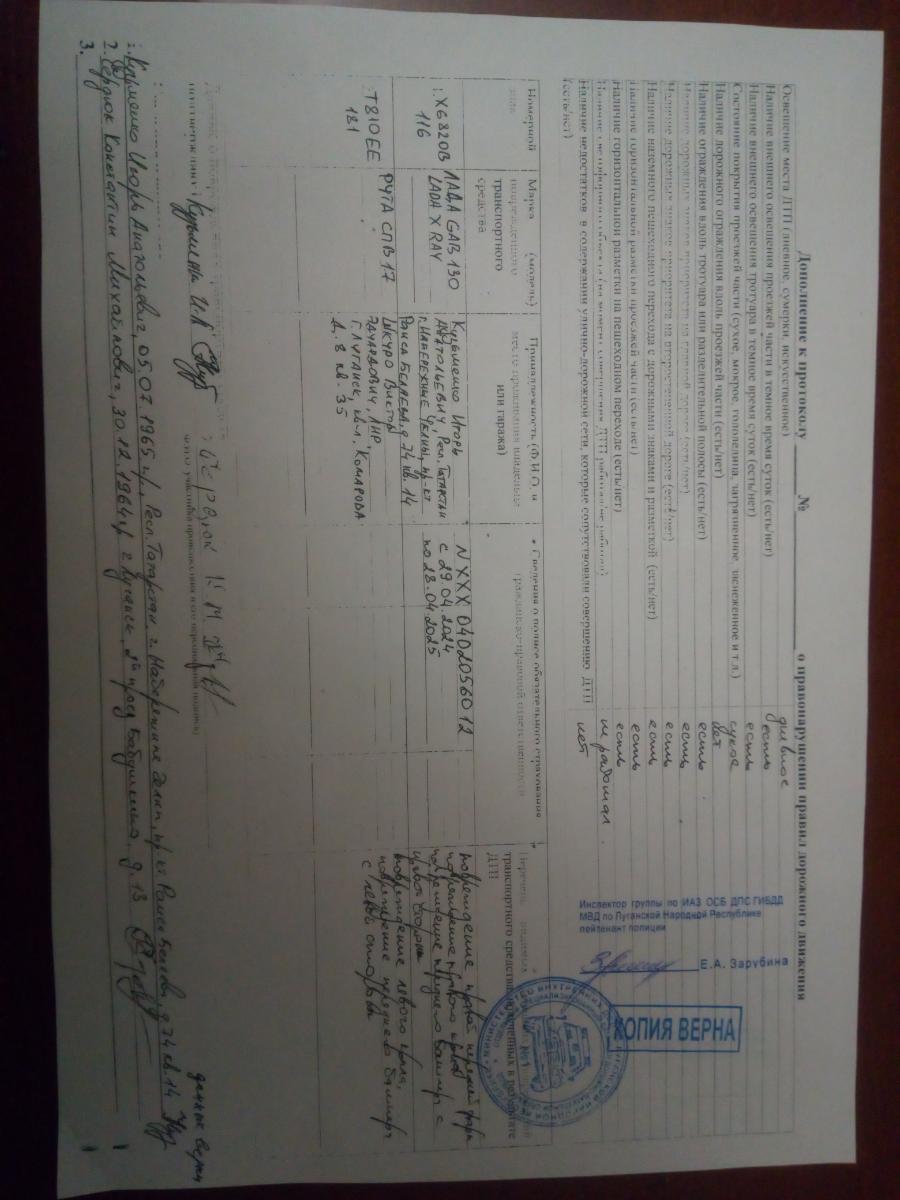 Дополнение к протоколу № о правонарушении правил дорожного движения
Освещение места ДТП (дневное, сумерки, искусственное) дневное
Наличие внешнего освещения проезжей части в темное время суток (есть/нет) есть
Наличие внешнего освещения тротуара в темное время суток (есть/нет) есть
Состояние покрытия проезжей части (сухое, мокрое, гололедица, загрязненное, заснеженное и т.д.) сухое
Наличие дорожного ограждения вдоль проезжей части (есть/нет) нет
Наличие ограждения вдоль тротуара или разделительной полосы (есть/нет) есть
Наличие дорожных знаков приоритета на главной дороге (есть/нет) есть
Наличие дорожных знаков приоритета на второстепенной дороге (есть/нет) есть
Наличие наземного пешеходного перехода с дорожными знаками и разметкой (есть/нет) есть
Наличие горизонтальной разметки проезжей части (есть/нет) есть
Наличие горизонтальной разметки на пешеходном переходе (есть/нет) есть
Наличие светофорного объекта (на момент совершения ДТП работал/не работал) не работал
Наличие недостатков в содержании улично-дорожной сети, которые сопутствовали совершению ДТП нет
(есть/нет)
Инспектор группы по ИАЗ ОСБ ДПС ГИБДД
МВД по Луганской Народной Республике
лейтенант полиции
Е.А. Зарубина
КОПИЯ ВЕРНА
Номерной знак
Марка (модель) поврежденного транспортного средства
Принадлежность (Ф.И.О. и место проживания владельца или гаража)
Сведения о полисе обязательного страхования гражданско-правовой ответственности
Перечень видимых транспортного средства, полученных в результате ДТП
Х682ОВ
116
ЛАДА GAB 130
LADA X RAY
Кузьменко Игорь
Анатольевич, Респ. Татарстан
г. Набережные Челны, пр-кт
Раиса Беляева, д. 74 кв. 14
N XXX 0402056012
с 29.04.2024
по 28.04.2025
повреждение правой передней фары
повреждение правого крыла
повреждение переднего бампера с
правой стороны
Т810ЕЕ
181
РУТА СПВ 17
Шкуро Виктор
Эдуардович, ЛНР,
г. Луганск, кв-л. Комарова
д. 8 кв. 35
повреждение левого крыла,
повреждение переднего бампера
с левой стороны
данные верны
Кузьменко И.А
Сердюк К.М.
1. Кузьменко Игорь Анатольевич, 05.07.1965 г/р, Респ. Татарстан, г. Набережные Челны, пр-кт Раиса Беляева, д. 74 кв. 14
2. Сердюк Константин Михайлович, 30.12.1964 г/р г. Луганск, проезд Бабушкина, д. 13
3.